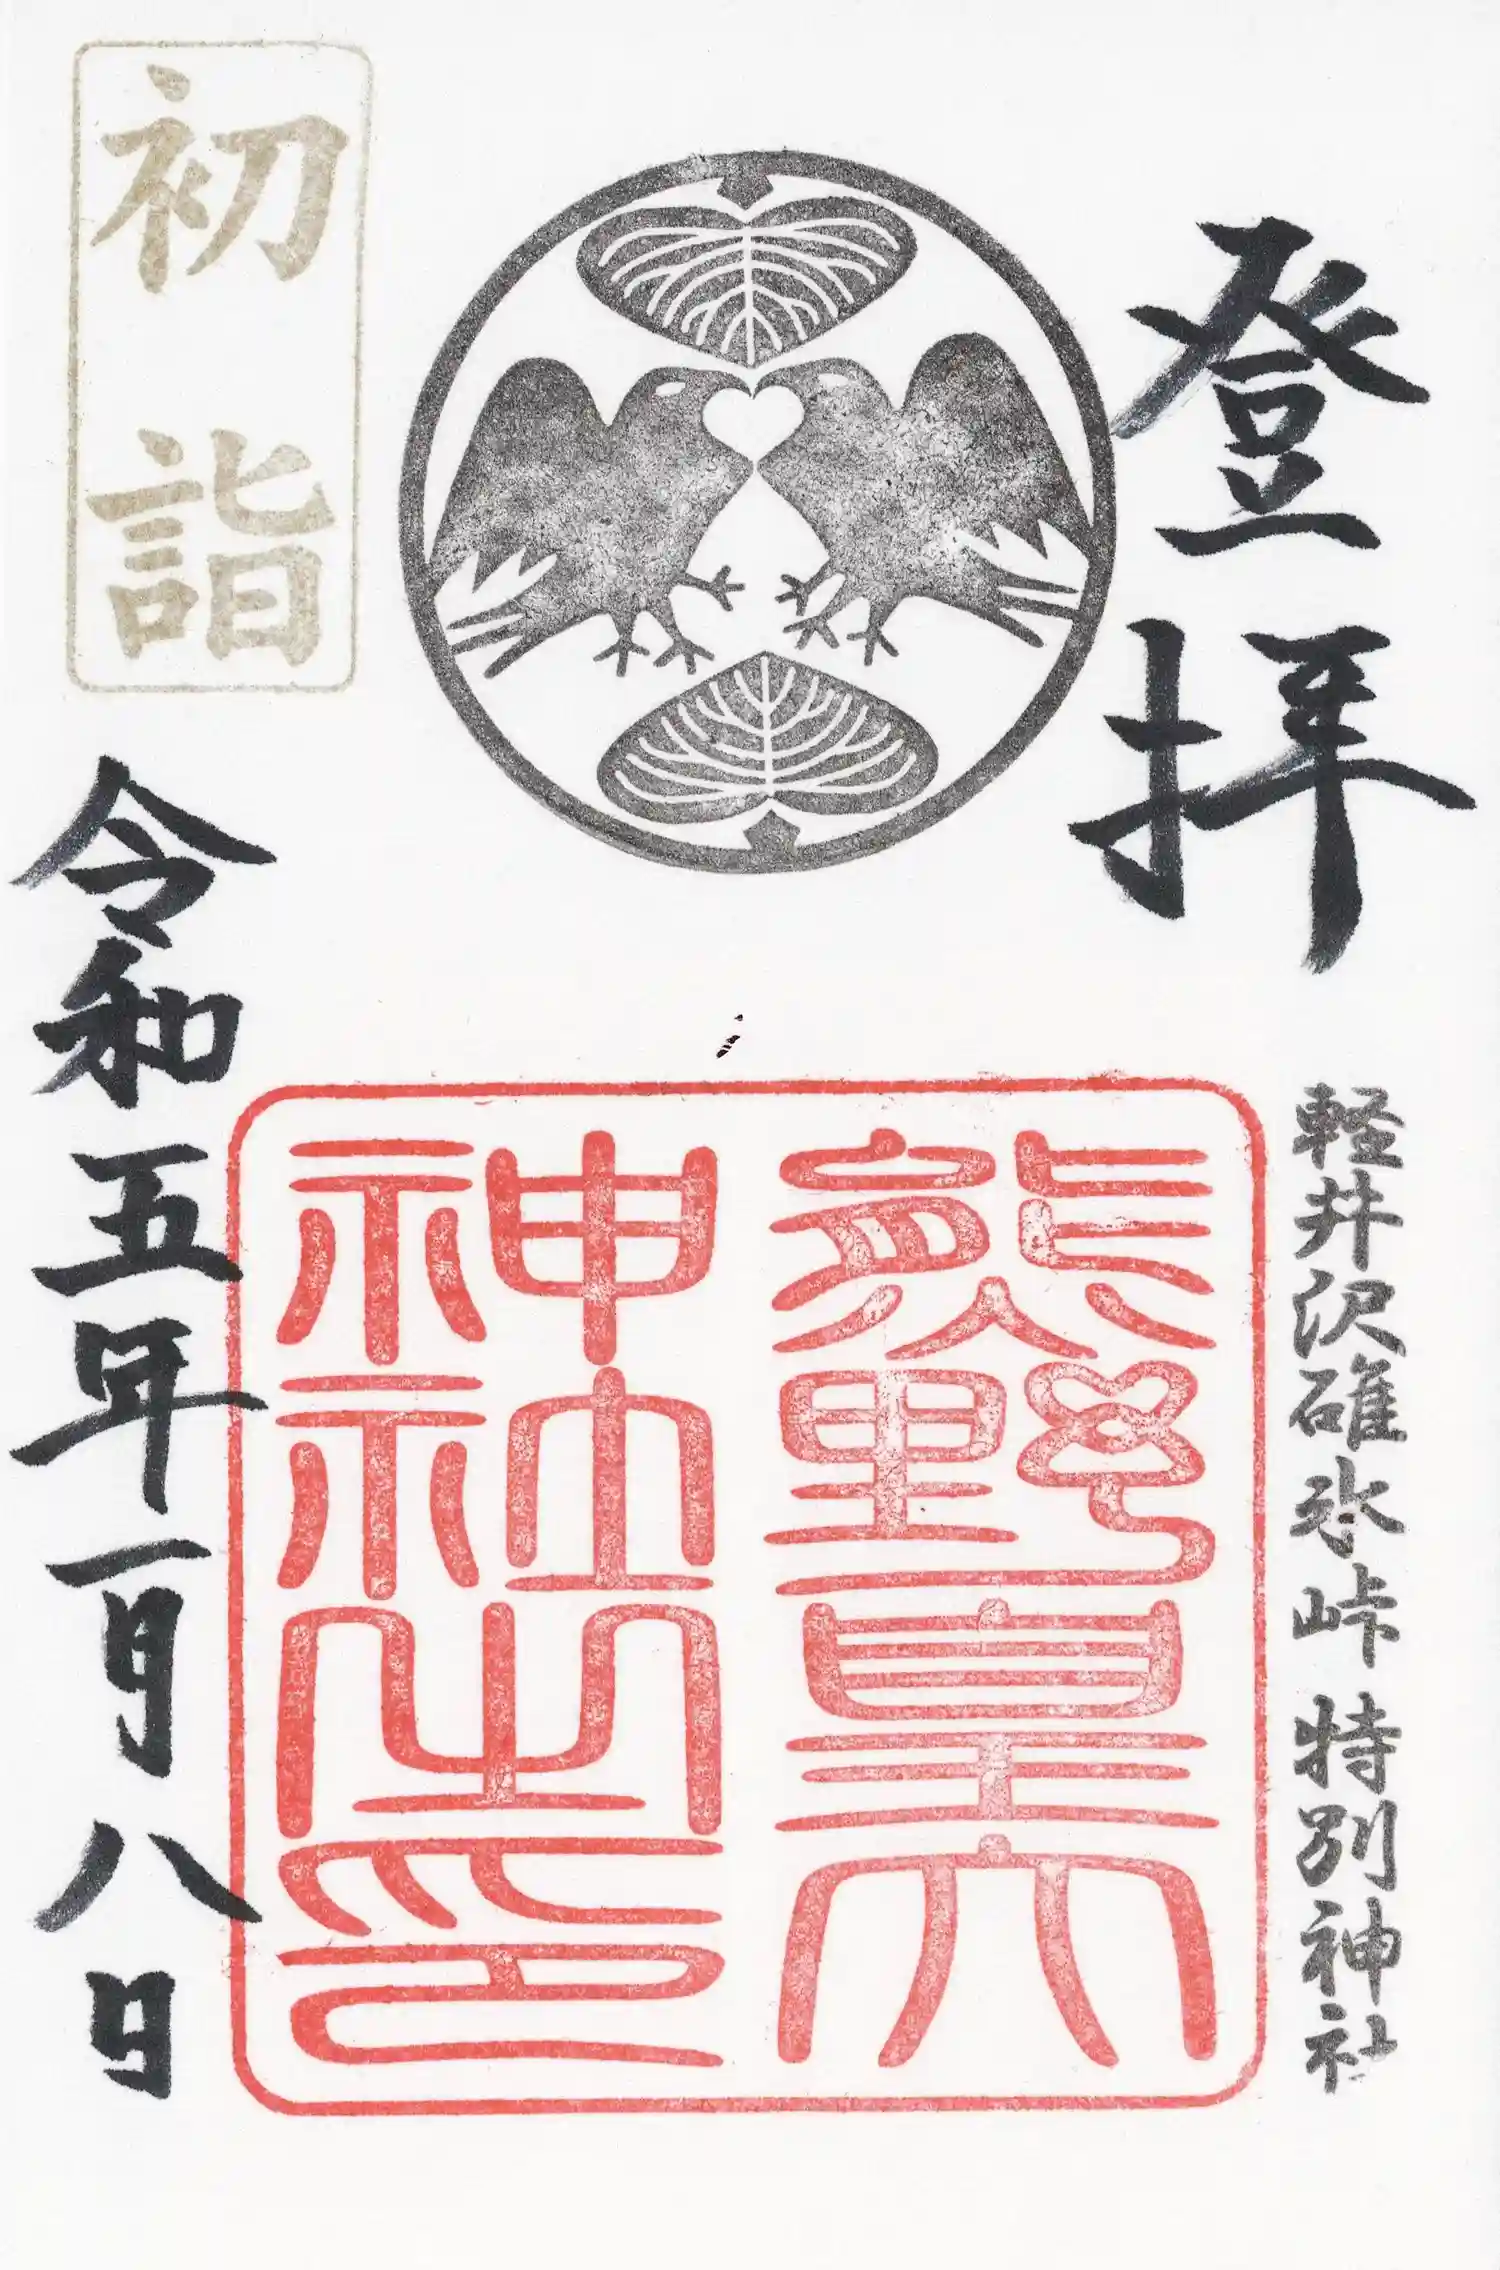 登拝
軽井沢碓氷峠 特別神社
熊野皇大
神社之印
初詣
令和五年一月八日